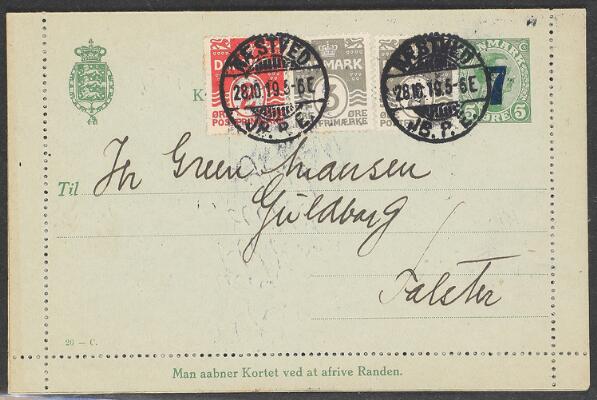 NÆSTVED
28.10.19.5-6E
JB. P. E.
NÆSTVED
28.10.19.5-6E
JB. P. E.
ØRE
POSTFRIMÆRKE
ØRE
FRIMÆRKE
ØRE
7
5 ØRE 5
Til
Hr Green Hansen
Guldborg
Falster
20 — C.
Man aabner Kortet ved at afrive Randen.